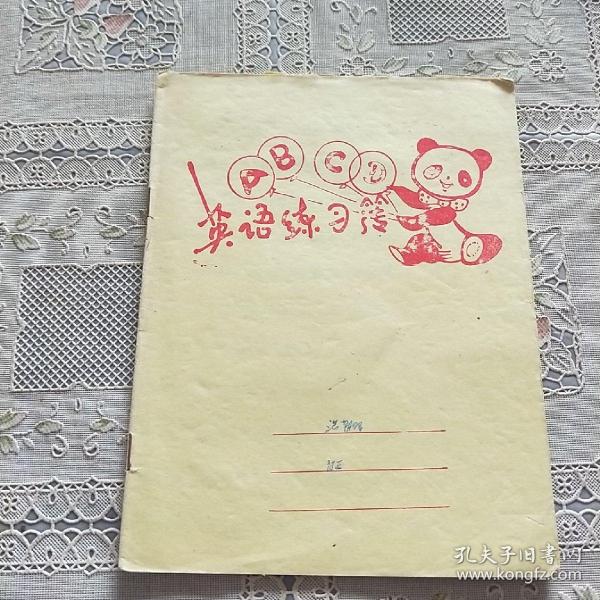 A B C D
英语练习簿
孔夫子旧书网
www.kongfz.com